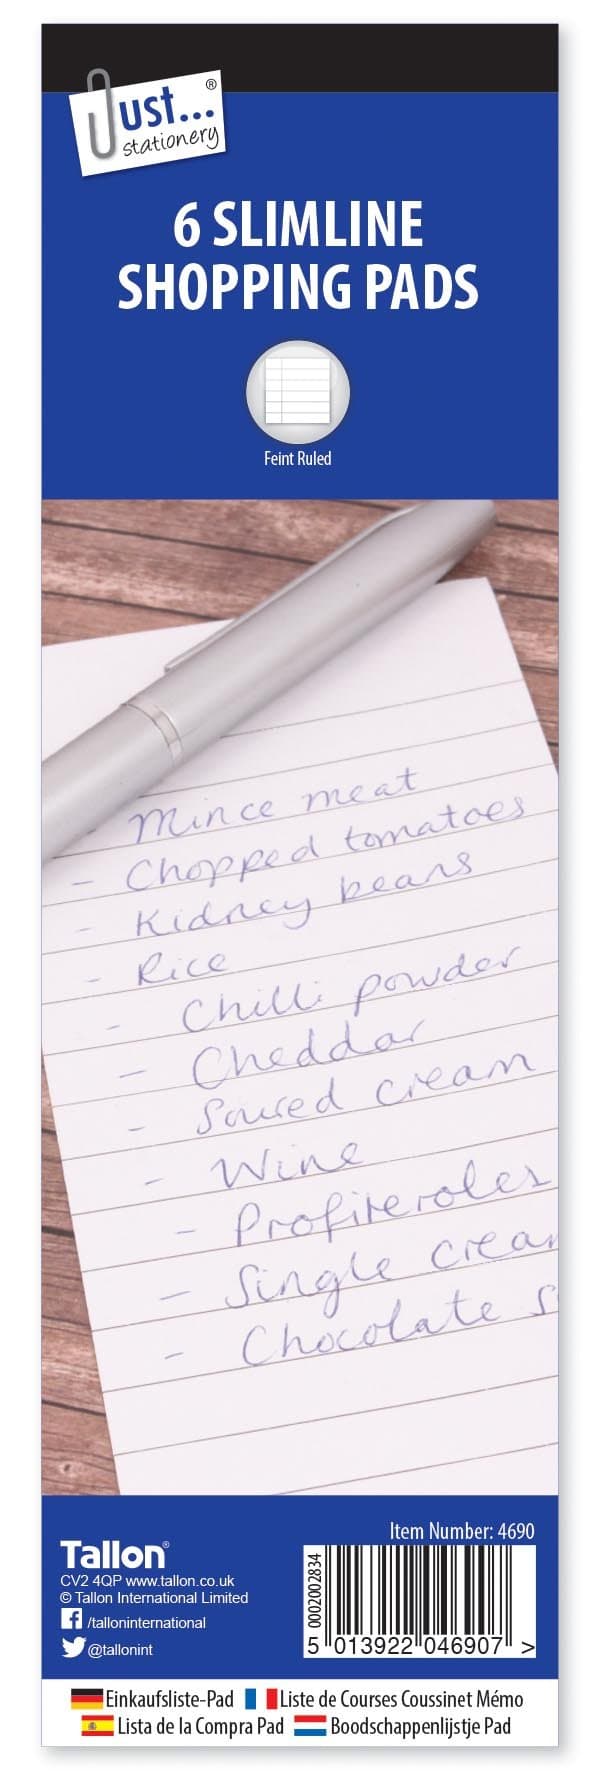 Just...®
stationery
6 SLIMLINE
SHOPPING PADS
Feint Ruled
- Mince meat
- Chopped tomatoes
- Kidney beans
- Rice
- Chilli powder
- Cheddar
- Soured cream
- Wine
- Profiteroles
- Single crea
- Chocolate s
Item Number: 4690
Tallon®
CV2 4QP www.tallon.co.uk
© Tallon International Limited
/talloninternational
@tallonint
0002002834
5 013922 046907 >
Einkaufsliste-Pad Liste de Courses Coussinet Mémo
Lista de la Compra Pad Boodschappenlijstje Pad